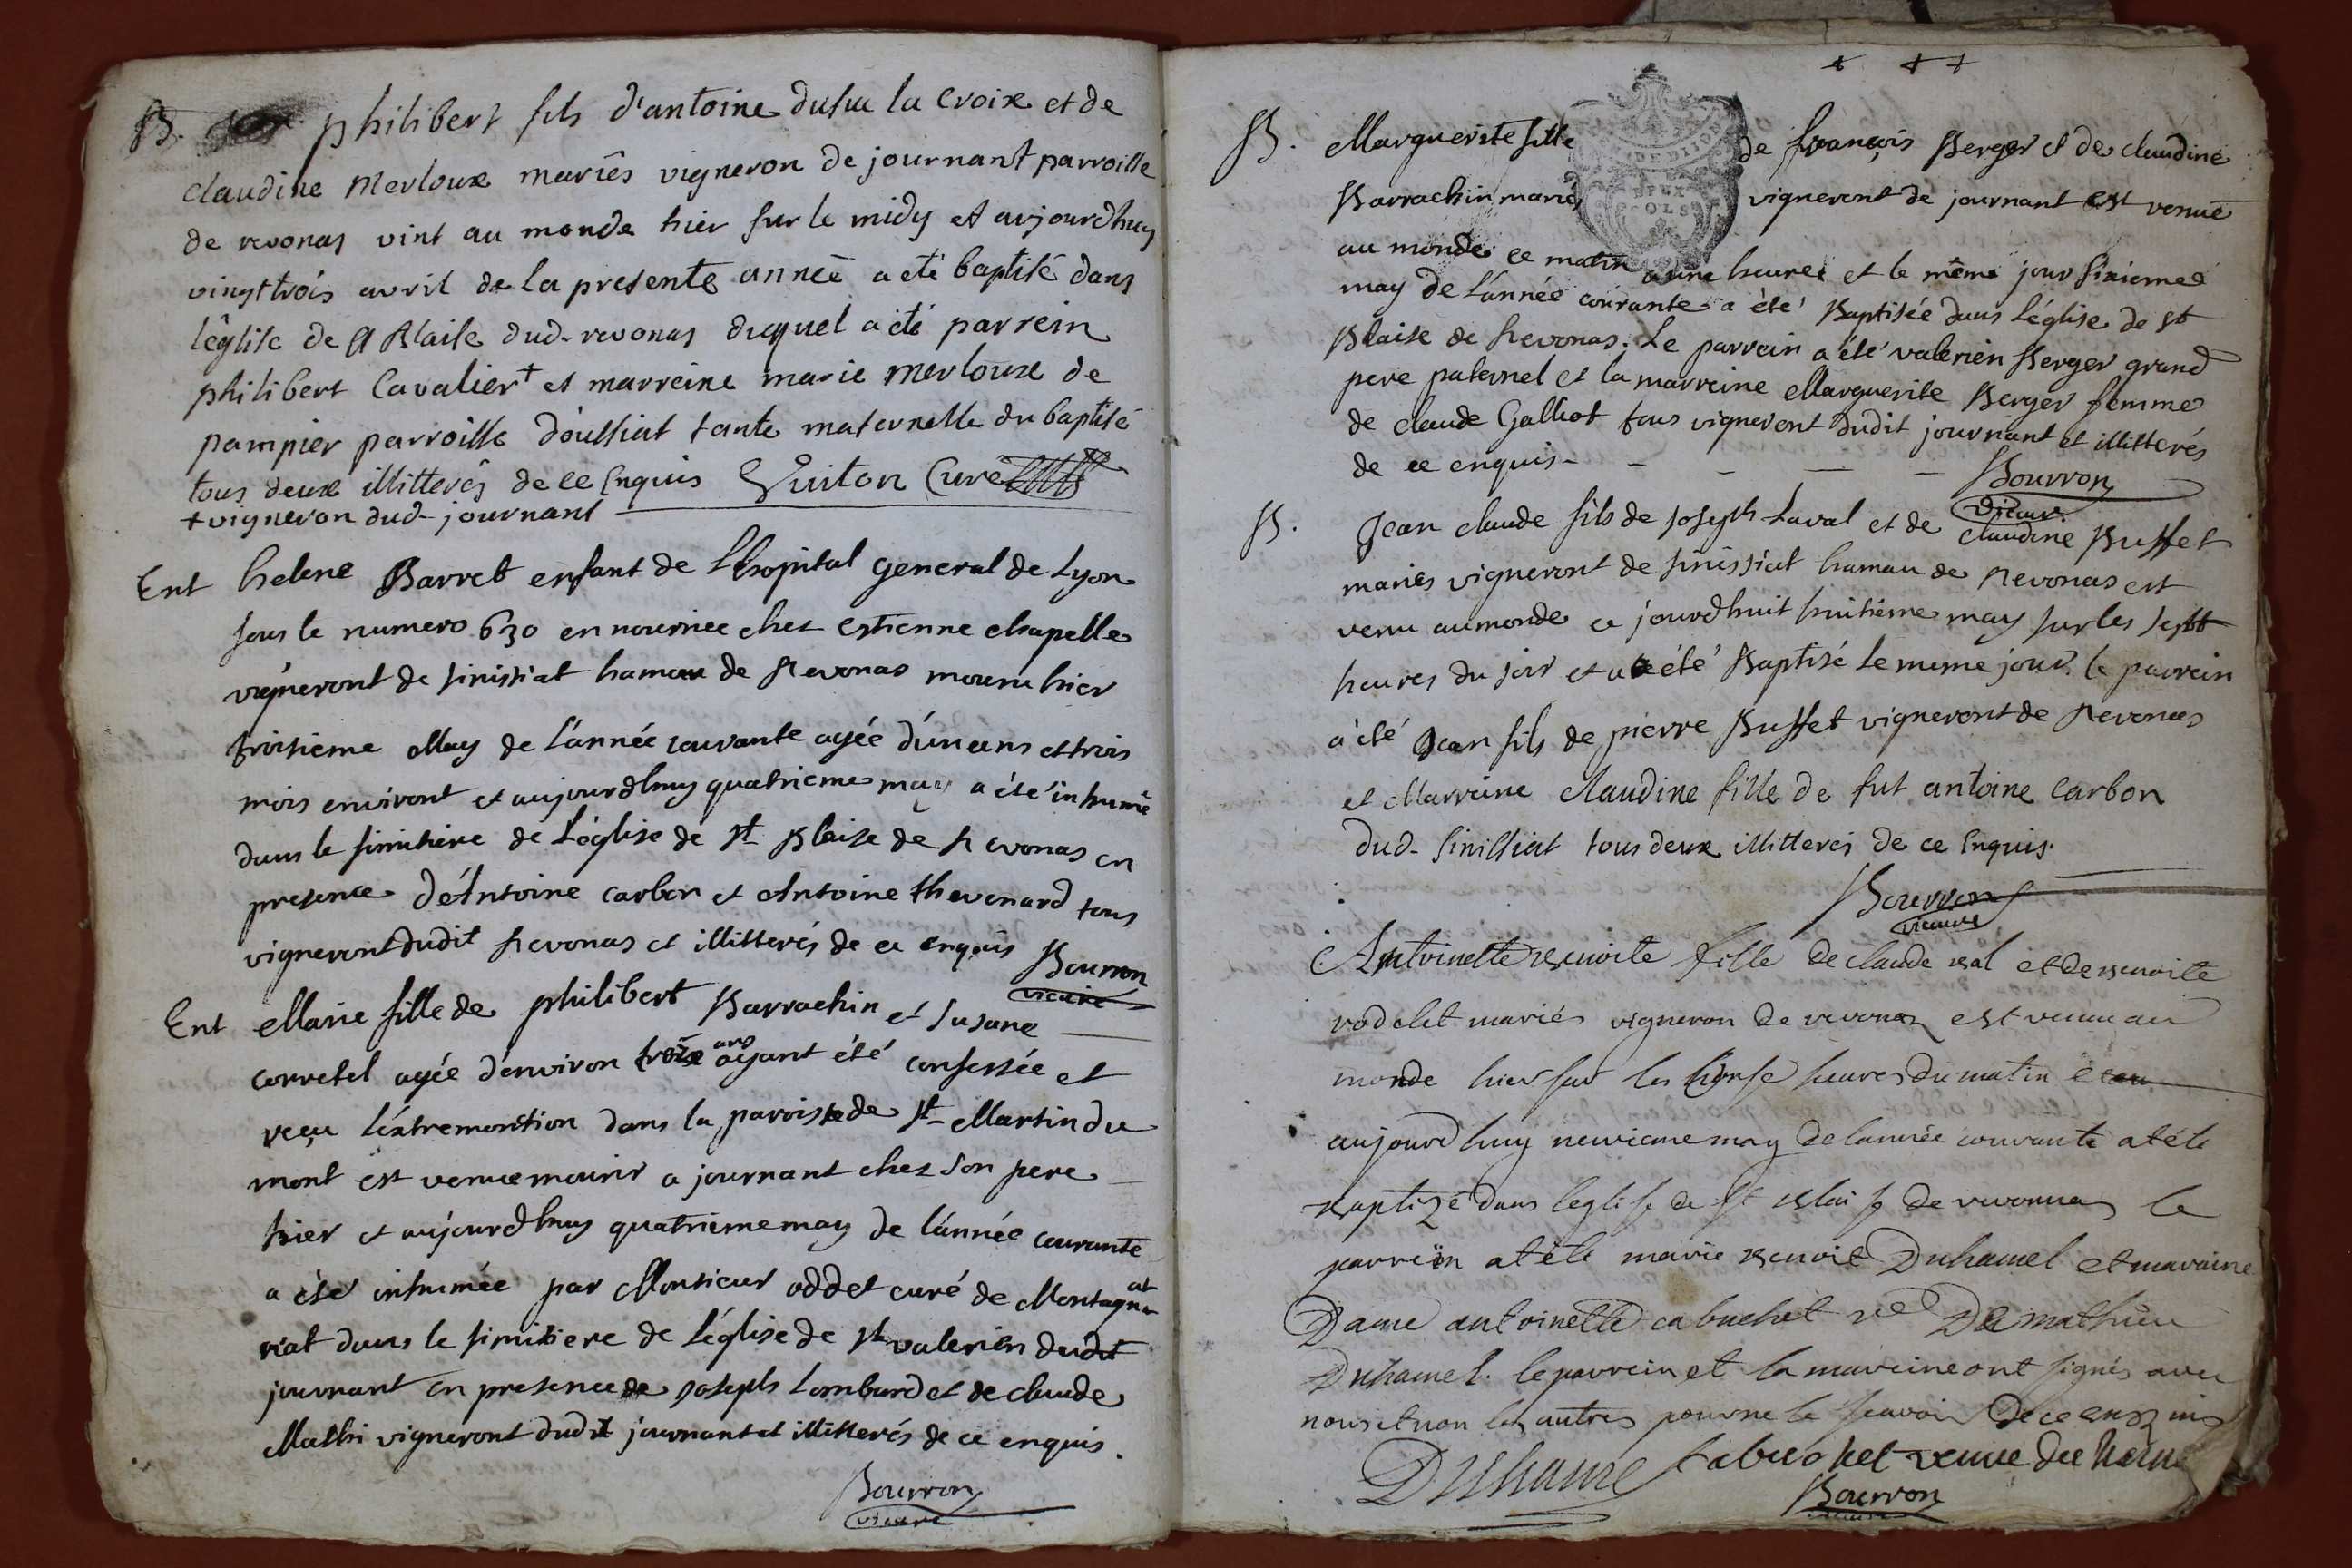 B. philibert fils d'antoine dufu la Croix et de
claudine Merloux mariês vigneron de journant parroisse
de revonas vint au monde hier sur le midy et aujourdhuy
vingttrois avril de la presente année a eté baptisé dans
l'église de st Blaise dud. revonas duquel a été parrein
philibert Cavalier + et marreine marie merloux de
pampier parroisse d'oussiat tante maternelle du baptisé
tous deux illitterés de ce Enquis Guiton Curé
+ vigneron dud. journant
Ent helene Barret enfant de Lhopital general de Lyon
sous le numero 630 en nourrice chez estienne chapelle
vigneront de sinissiat hamau de Revonas mouru hier
troisieme May de l'année courante agée d'un ans et trois
mois environt et aujourdhuy quatrieme may a été inhumé
dans le simitiere de L'église de st Blaise de Revonas en
presence d'Antoine carbon et Antoine thevenard tous
vigneront dudit Revonas et illitterés de ce enquis Bourron
vicaire
Ent Marie fille de philibert Barrachin et susane
corretel agée denviron troize ans ayant été confessée et
reçu l'éxtremontion dans la paroisse de st Martin du
mont est venue mourir a journant chez son pere
hier et aujourdhuy quatrieme may de l'année courante
a été inhumée par Monsieur oddet curé de Montagnat
riat dans le simitiere de L'église de st valerien dudit
journant en presence de joseph Lombard et de claude
Mathi vigneront dudit journant et illitterés de ce enquis.
Bourron
vicaire
B. Marguerite fille de françois Berger et de claudine
Barrachin mariés vigneront de journant est venue
au monde ce matin a une heure et le même jour sixieme
may de l'année courante a été Baptisée dans L'église de st
Blaise de Revonas. Le parrein a été valerien Berger grand
pere paternel et la marreine Marguerite Berger femme
de claude Galliot tous vigneront dudit journant et illitterés
de ce enquis -
Bourron
vicaire
B. Jean claude fils de joseph Laval et de claudine Buffet
mariés vigneront de sinissiat hamau de Revonas est
venu au monde ce jourdhuit huitième may sur les sept
heures du soir et a été Baptisé le meme jour. le parrein
a été Jean fils de pierre Buffet vigneront de Revonas
et Marreine claudine fille de fut antoine Carbon
dud. sinissiat tous deux illitterés de ce Enquis.
Bourron
vicaire
Antoinette Benoite fille de claude et de Benoite
rodelet mariés vigneron de revonas est venue au
monde hier sur les honse heures du matin et
aujourdhuy neuvieme may de lannée courante at été
Baptizé dans leglise de st Blaise de revonnas le
parrein at été marie Benoit Duhamel et maraine
Dame antoinette cabuchet ve De mathieu
Duhamel. le parrein et la mareine ont signés avec
nous et non les autres pour ne le scavoir de ce enquis
Duhamel Cabuchet veuve du
Bourron
vicaire